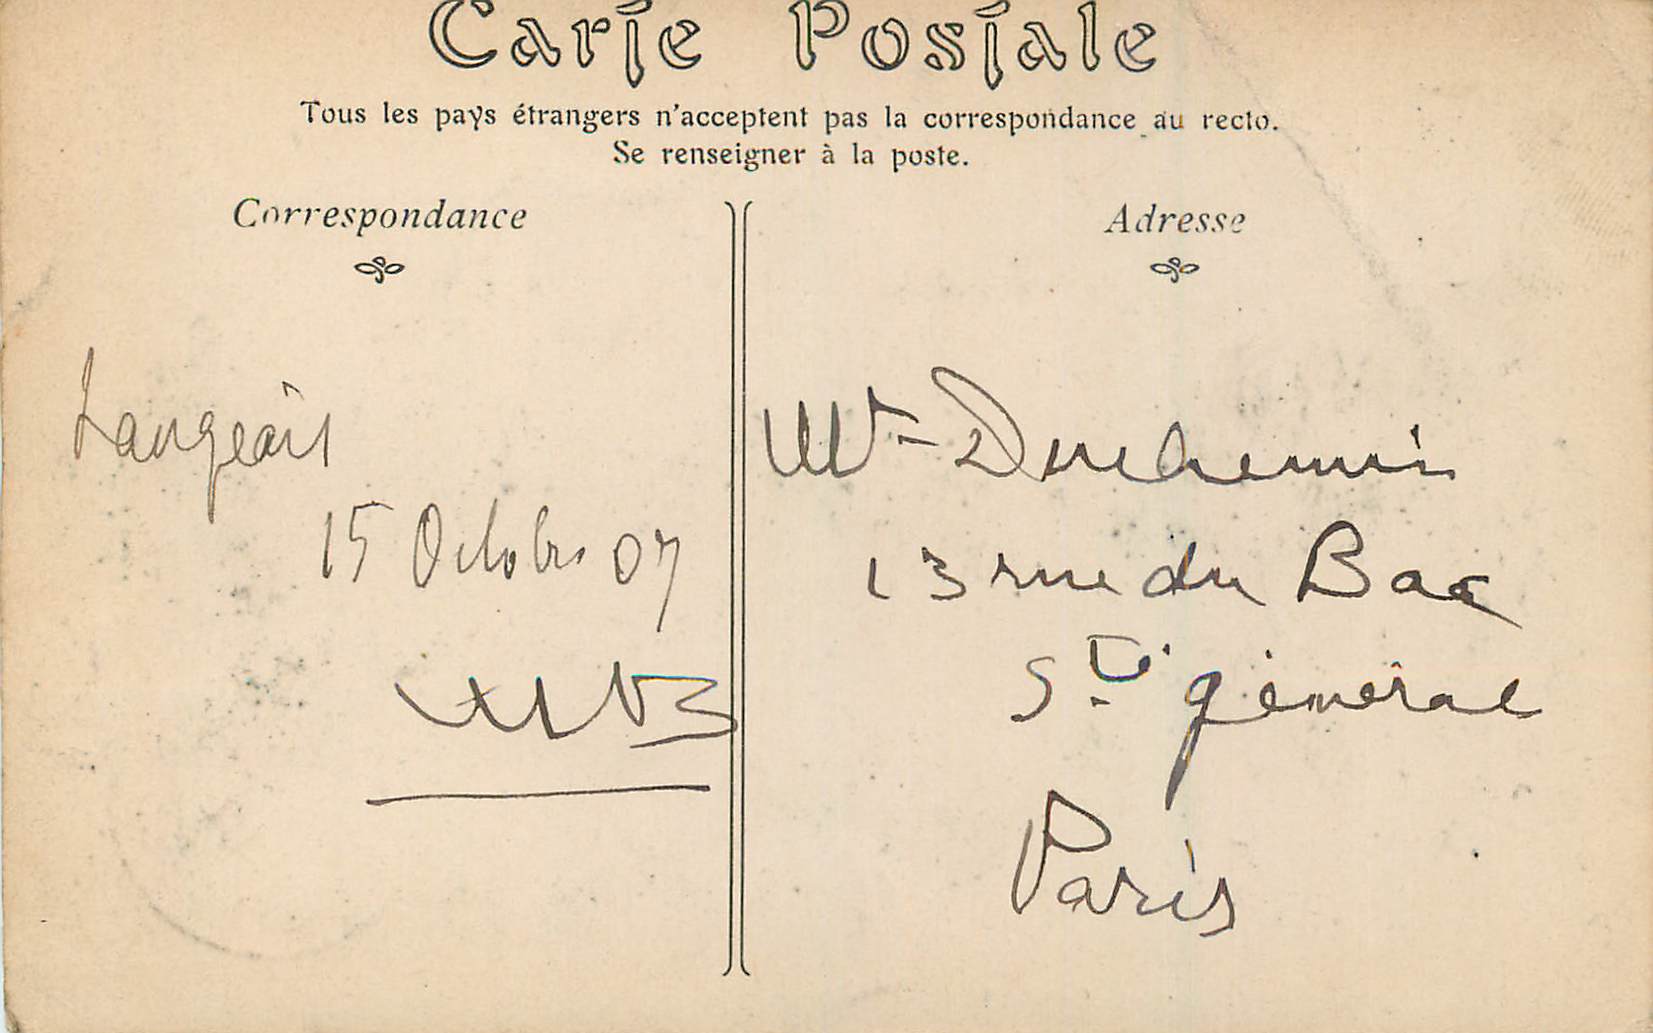 Carte Postale
Tous les pays étrangers n'acceptent pas la correspondance au recto.
Se renseigner à la poste.
Correspondance
Adresse
Langeais
15 Octobre 07
Mr Duchemin
13 rue du Bac
St général
Paris